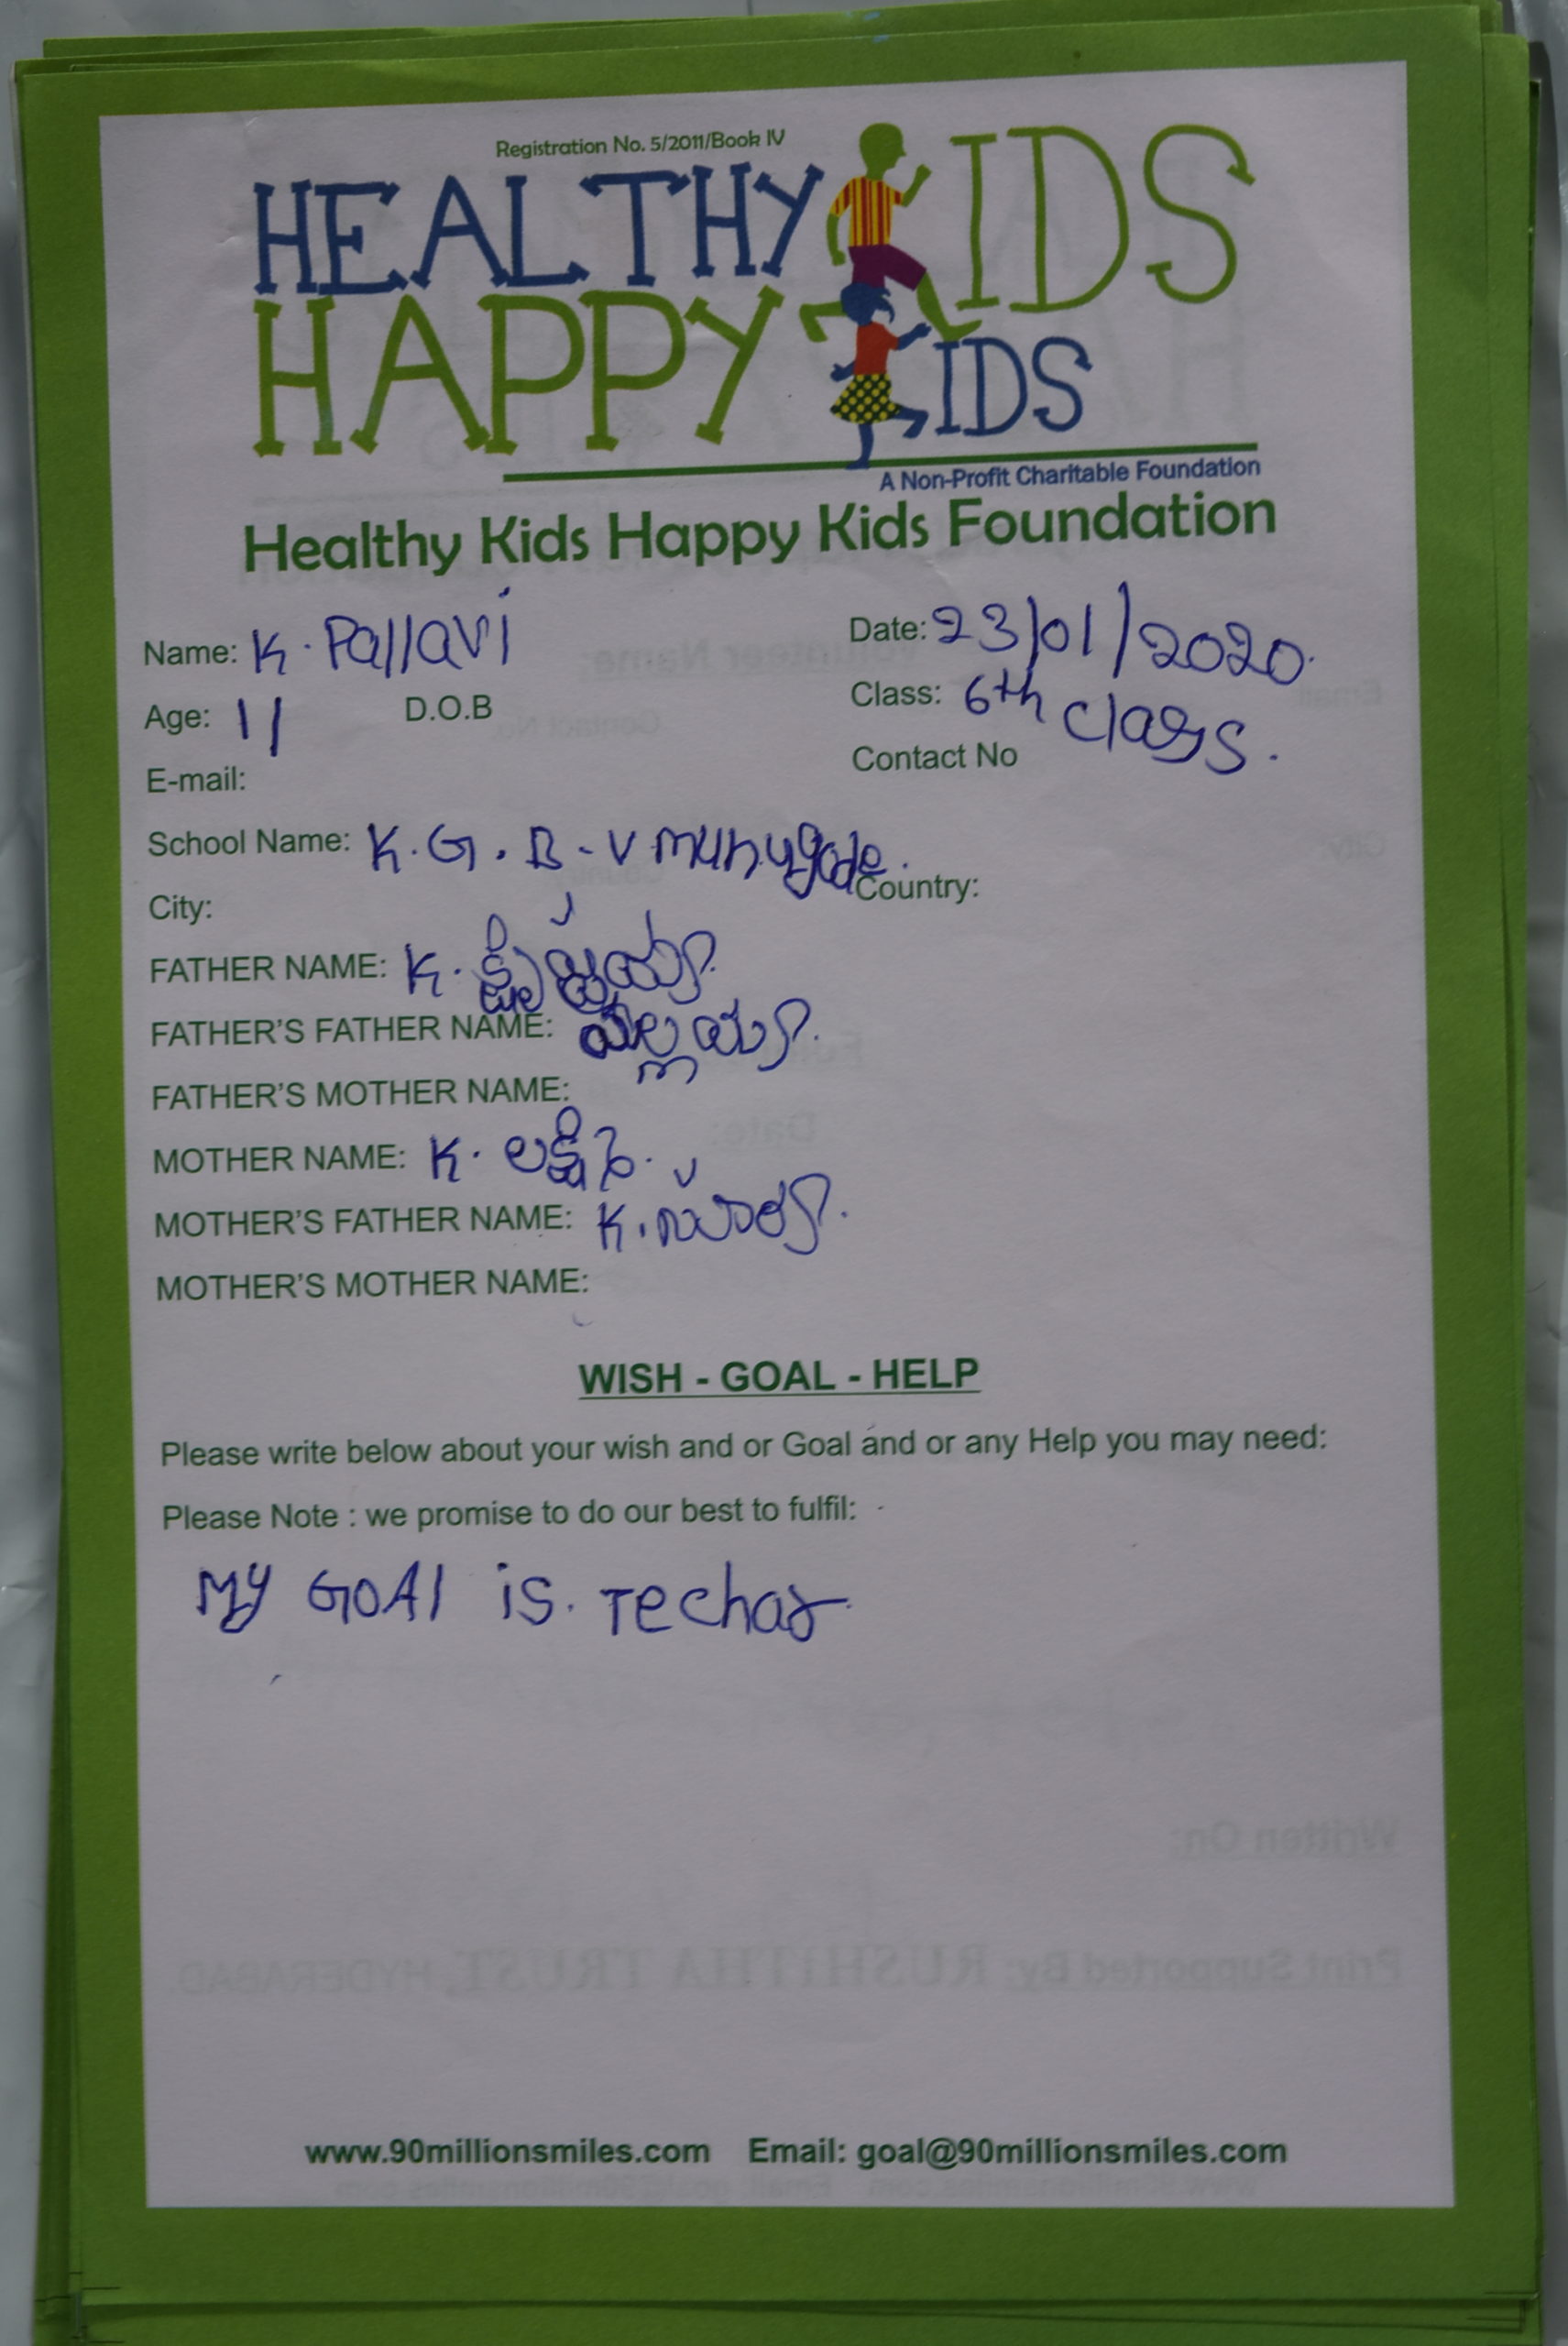 Registration No. 5/2011/Book IV
HEALTHY KIDS
HAPPY KIDS
A Non-Profit Charitable Foundation
Healthy Kids Happy Kids Foundation
Name: K. Pallavi Date: 23/01/2020.
Age: 11 D.O.B Class: 6th class.
E-mail: Contact No
School Name: K.G.B.V
City: Country:
FATHER NAME: K.
FATHER'S FATHER NAME: యల్లయ్య.
FATHER'S MOTHER NAME:
MOTHER NAME: K. లక్ష్మి.
MOTHER'S FATHER NAME: K.
MOTHER'S MOTHER NAME:
WISH - GOAL - HELP
Please write below about your wish and or Goal and or any Help you may need:
Please Note : we promise to do our best to fulfil:
MY GOAl is. Techar
Written On:
Print Supported By: RUSHITHA TRUST, HYDERABAD.
www.90millionsmiles.com Email: goal@90millionsmiles.com